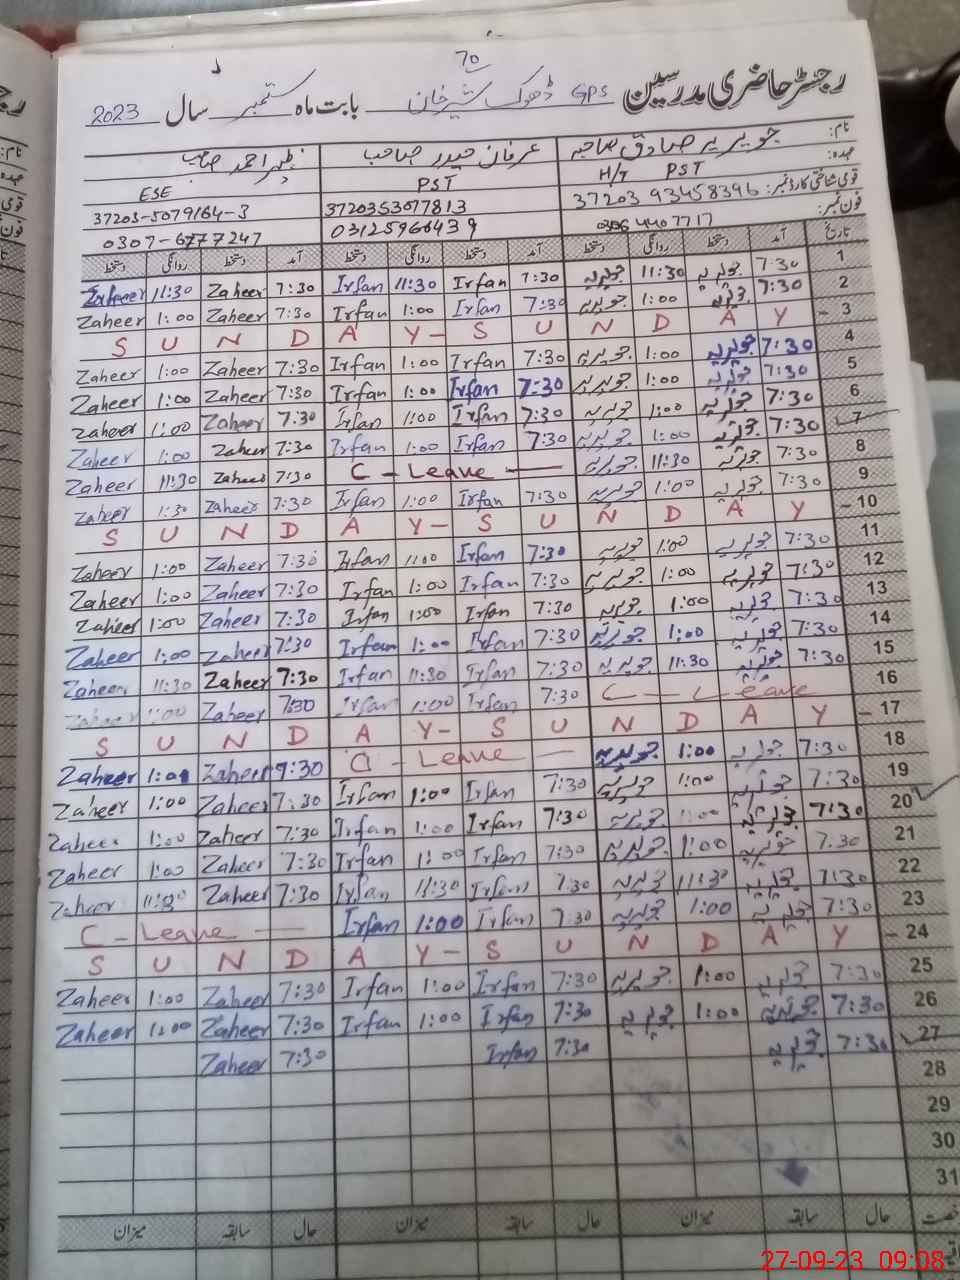 70
رجسٹر حاضری مدرسین GPS ڈھوک شیر خان بابت ماہ ستمبر سال 2023
نام: جویریہ صادق صاحبہ عرفان حیدر صاحب ظہیر احمد صاحب
عہدہ: H/T PST PST ESE
قومی شناختی کارڈ نمبر: 37203 93458396 3720353077813 37203-5079164-3
فون نمبر: 0306 4407717 03125966439 0307-6777247
تاریخ آمد دستخط روانگی دستخط آمد دستخط روانگی دستخط آمد دستخط روانگی دستخط
Zaheer 11:30 Zaheer 7:30 Irfan 11:30 Irfan 7:30 جویریہ 11:30 جویریہ 7:30 1
Zaheer 1:00 Zaheer 7:30 Irfan 1:00 Irfan 7:30 جویریہ 1:00 جویریہ 7:30 2
S U N D A Y - S U N D A Y - 3
Zaheer 1:00 Zaheer 7:30 Irfan 1:00 Irfan 7:30 جویریہ 1:00 جویریہ 7:30 4
Zaheer 1:00 Zaheer 7:30 Irfan 1:00 Irfan 7:30 جویریہ 1:00 جویریہ 7:30 5
Zaheer 1:00 Zaheer 7:30 Irfan 1:00 Irfan 7:30 جویریہ 1:00 جویریہ 7:30 6
Zaheer 1:00 Zaheer 7:30 Irfan 1:00 Irfan 7:30 جویریہ 1:00 جویریہ 7:30 7
Zaheer 11:30 Zaheer 7:30 C - Leave - جویریہ 11:30 جویریہ 7:30 8
Zaheer 1:30 Zaheer 7:30 Irfan 1:00 Irfan 7:30 جویریہ 1:00 جویریہ 7:30 9
S U N D A Y - S U N D A Y - 10
Zaheer 1:00 Zaheer 7:30 Irfan 1:00 Irfan 7:30 جویریہ 1:00 جویریہ 7:30 11
Zaheer 1:00 Zaheer 7:30 Irfan 1:00 Irfan 7:30 جویریہ 1:00 جویریہ 7:30 12
Zaheer 1:00 Zaheer 7:30 Irfan 1:00 Irfan 7:30 جویریہ 1:00 جویریہ 7:30 13
Zaheer 1:00 Zaheer 7:30 Irfan 1:00 Irfan 7:30 جویریہ 1:00 جویریہ 7:30 14
Zaheer 11:30 Zaheer 7:30 Irfan 11:30 Irfan 7:30 جویریہ 11:30 جویریہ 7:30 15
Zaheer 1:00 Zaheer 7:30 Irfan 1:00 Irfan 7:30 C - Leave 16
S U N D A Y - S U N D A Y - 17
Zaheer 1:00 Zaheer 9:30 C - Leave - جویریہ 1:00 جویریہ 7:30 18
Zaheer 1:00 Zaheer 7:30 Irfan 1:00 Irfan 7:30 جویریہ 1:00 جویریہ 7:30 19
Zaheer 1:00 Zaheer 7:30 Irfan 1:00 Irfan 7:30 جویریہ 1:00 جویریہ 7:30 20
Zaheer 1:00 Zaheer 7:30 Irfan 1:00 Irfan 7:30 جویریہ 1:00 جویریہ 7:30 21
Zaheer 11:30 Zaheer 7:30 Irfan 11:30 Irfan 7:30 جویریہ 11:30 جویریہ 7:30 22
C - Leave - Irfan 1:00 Irfan 7:30 جویریہ 1:00 جویریہ 7:30 23
S U N D A Y - S U N D A Y - 24
Zaheer 1:00 Zaheer 7:30 Irfan 1:00 Irfan 7:30 جویریہ 1:00 جویریہ 7:30 25
Zaheer 1:00 Zaheer 7:30 Irfan 1:00 Irfan 7:30 جویریہ 1:00 جویریہ 7:30 26
Zaheer 7:30 Irfan 7:30 جویریہ 7:30 27
28
29
30
31
حال سابقہ میزان حال سابقہ میزان حال سابقہ میزان
27-09-23 09:08